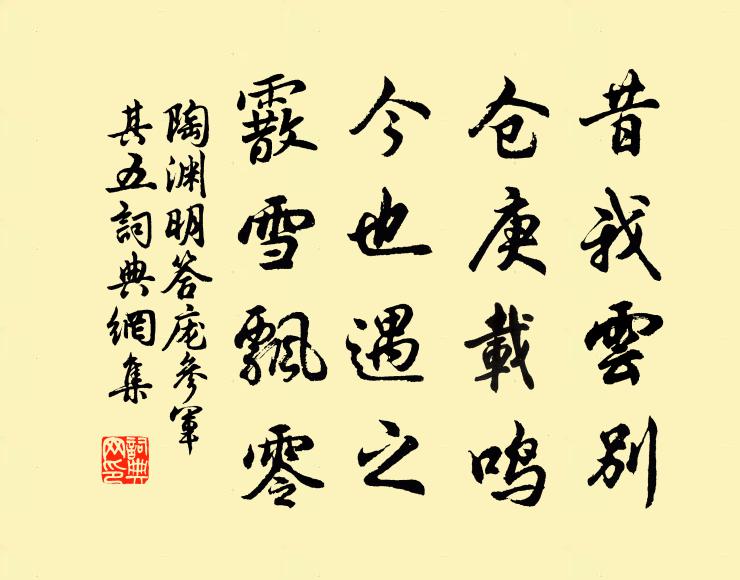 昔我雲別
仓庚載鸣
今也遇之
霰雪飄零
陶渊明答庞參军
其五詞典網集
詞典
网印